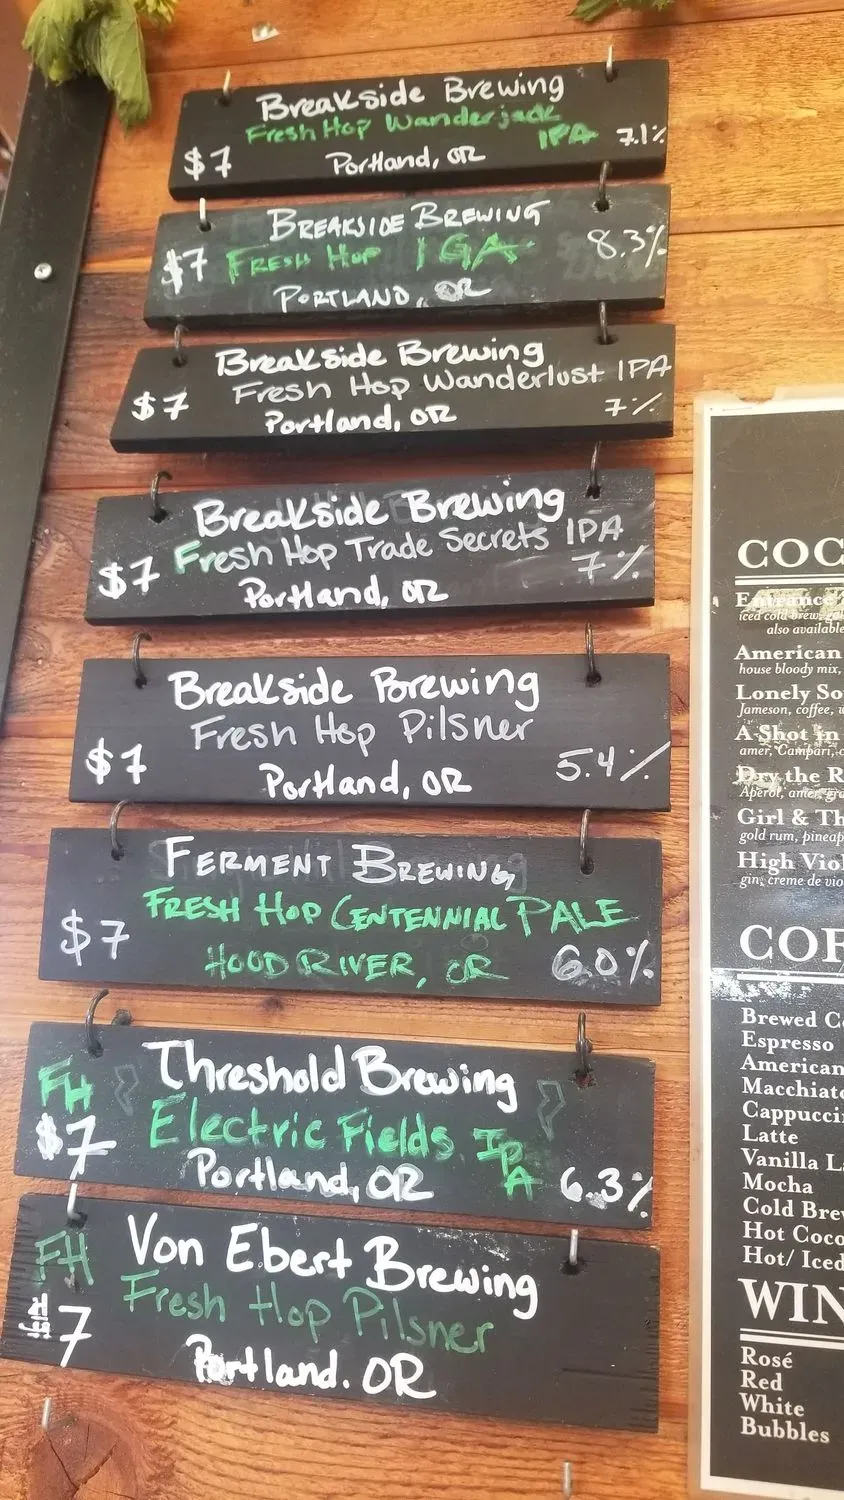 Breakside Brewing
Fresh Hop Wanderjack
IPA 7.1%
$7 Portland, OR
BREAKSIDE BREWING
$7 FRESH HOP IGA 8.3%
PORTLAND, OR
Breakside Brewing
Fresh Hop Wanderlust IPA
$7 7%
Portland, OR
Breakside Brewing
Fresh Hop Trade Secrets IPA
$7 7%
Portland, OR
Breakside Brewing
Fresh Hop Pilsner
$7 5.4%
Portland, OR
FERMENT BREWING
FRESH HOP CENTENNIAL PALE
$7 HOOD RIVER, OR 6.0%
FH Threshold Brewing
$7 Electric Fields IPA
Portland, OR 6.3%
FH Von Ebert Brewing
Fresh Hop Pilsner
7
Portland. OR
COC
Entrance
iced cold brew,
also available
American
house bloody mix,
Lonely So
Jameson, coffee,
A Shot in
amer, Campari,
Dry the R
Aperol, amer,
Girl & Th
gold rum, pineap
High Viol
gin, creme de vio
COF
Brewed Co
Espresso
American
Macchiato
Cappucci
Latte
Vanilla La
Mocha
Cold Brew
Hot Coco
Hot/ Iced
WIN
Rosé
Red
White
Bubbles